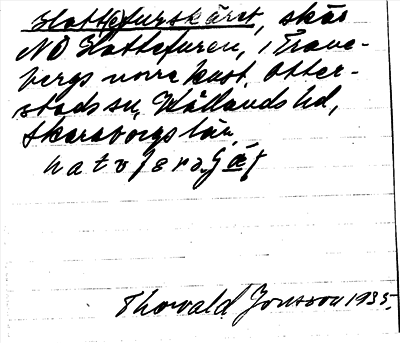 Hattefurskäret, skär
NO Hattefuren, i Trane-
bergs norra kust. Otter-
stads sn, Kållands hd,
Skaraborgs län.
Thorvald Jonsson 1935.